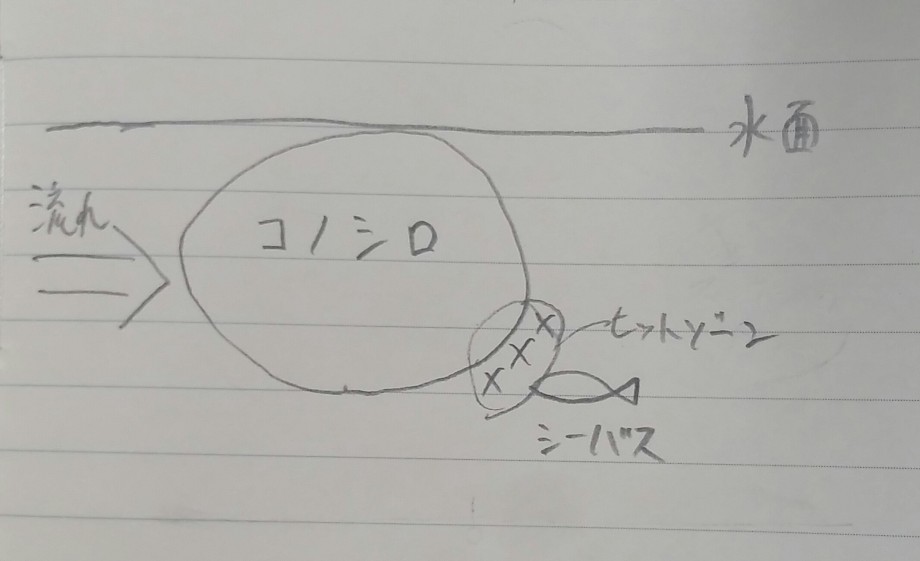 水面
流れ
コノシロ
x
x
x
ヒットゾーン
シーバス